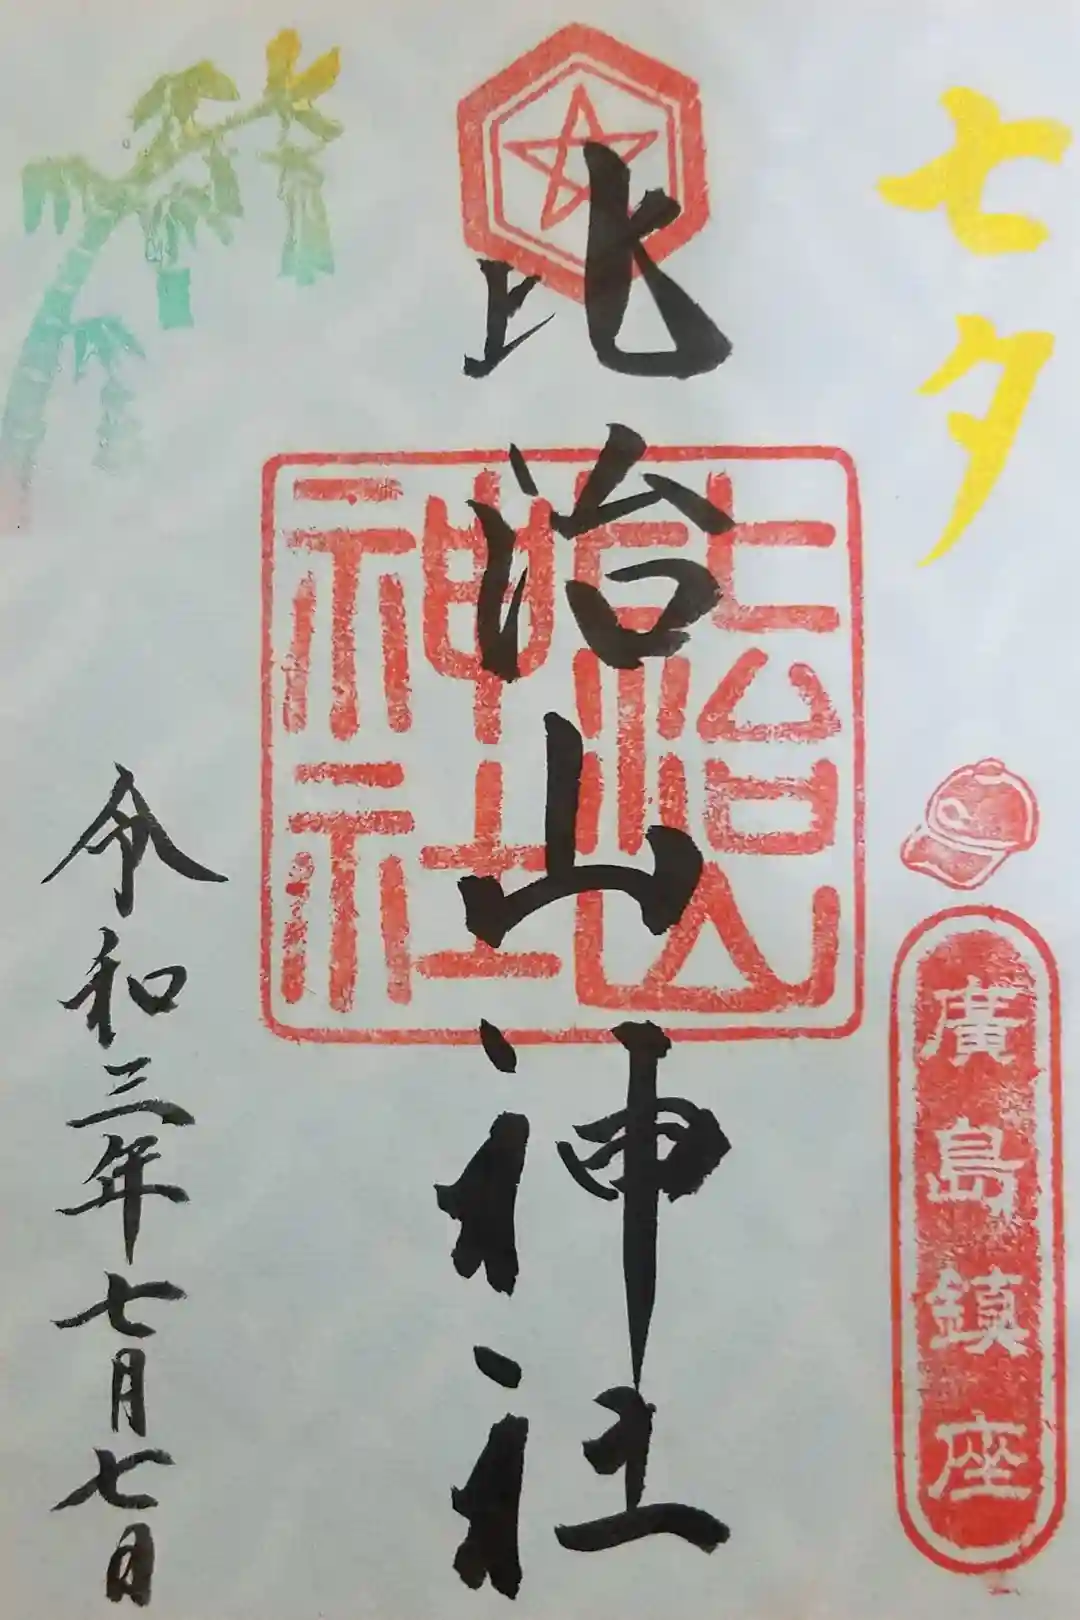 七夕
廣島鎮座
比治山神社
比治山
神社
令和三年七月七日